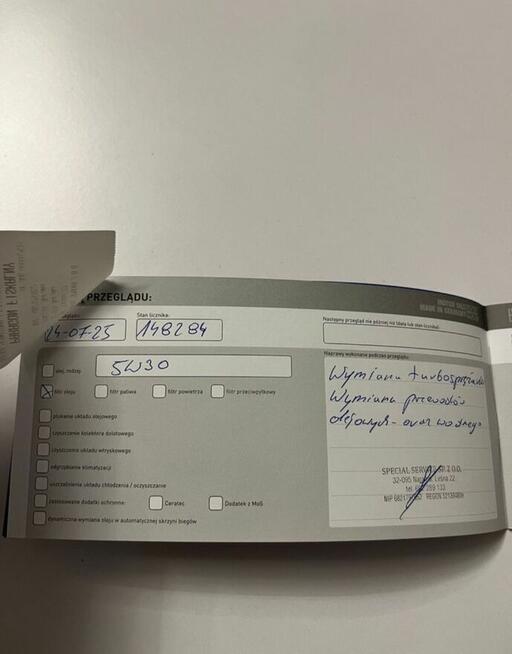 PRZEGLĄDU:
Stan licznika:
24-07-25
148284
Następny przegląd nie później niż (data lub stan licznika):
olej, rodzaj
5W30
filtr oleju
filtr paliwa
filtr powietrza
filtr przeciwpyłkowy
płukanie układu olejowego
czyszczenie kolektora dolotowego
czyszczenie układu wtryskowego
odgrzybianie klimatyzacji
uszczelnienie układu chłodzenia / oczyszczanie
zastosowane dodatki ochronne:
Ceratec
Dodatek z MoS
dynamiczna wymiana oleju w automatycznej skrzyni biegów
Naprawy wykonane podczas przeglądu:
Wymiana turbosprężarki
Wymiana przewodów
olejowych - oraz wodnego
SPECIAL SERVICE SP. Z O.O.
32-095 Leśna 22
tel. 289 133
NIP REGON
PARAGON FISKALNY